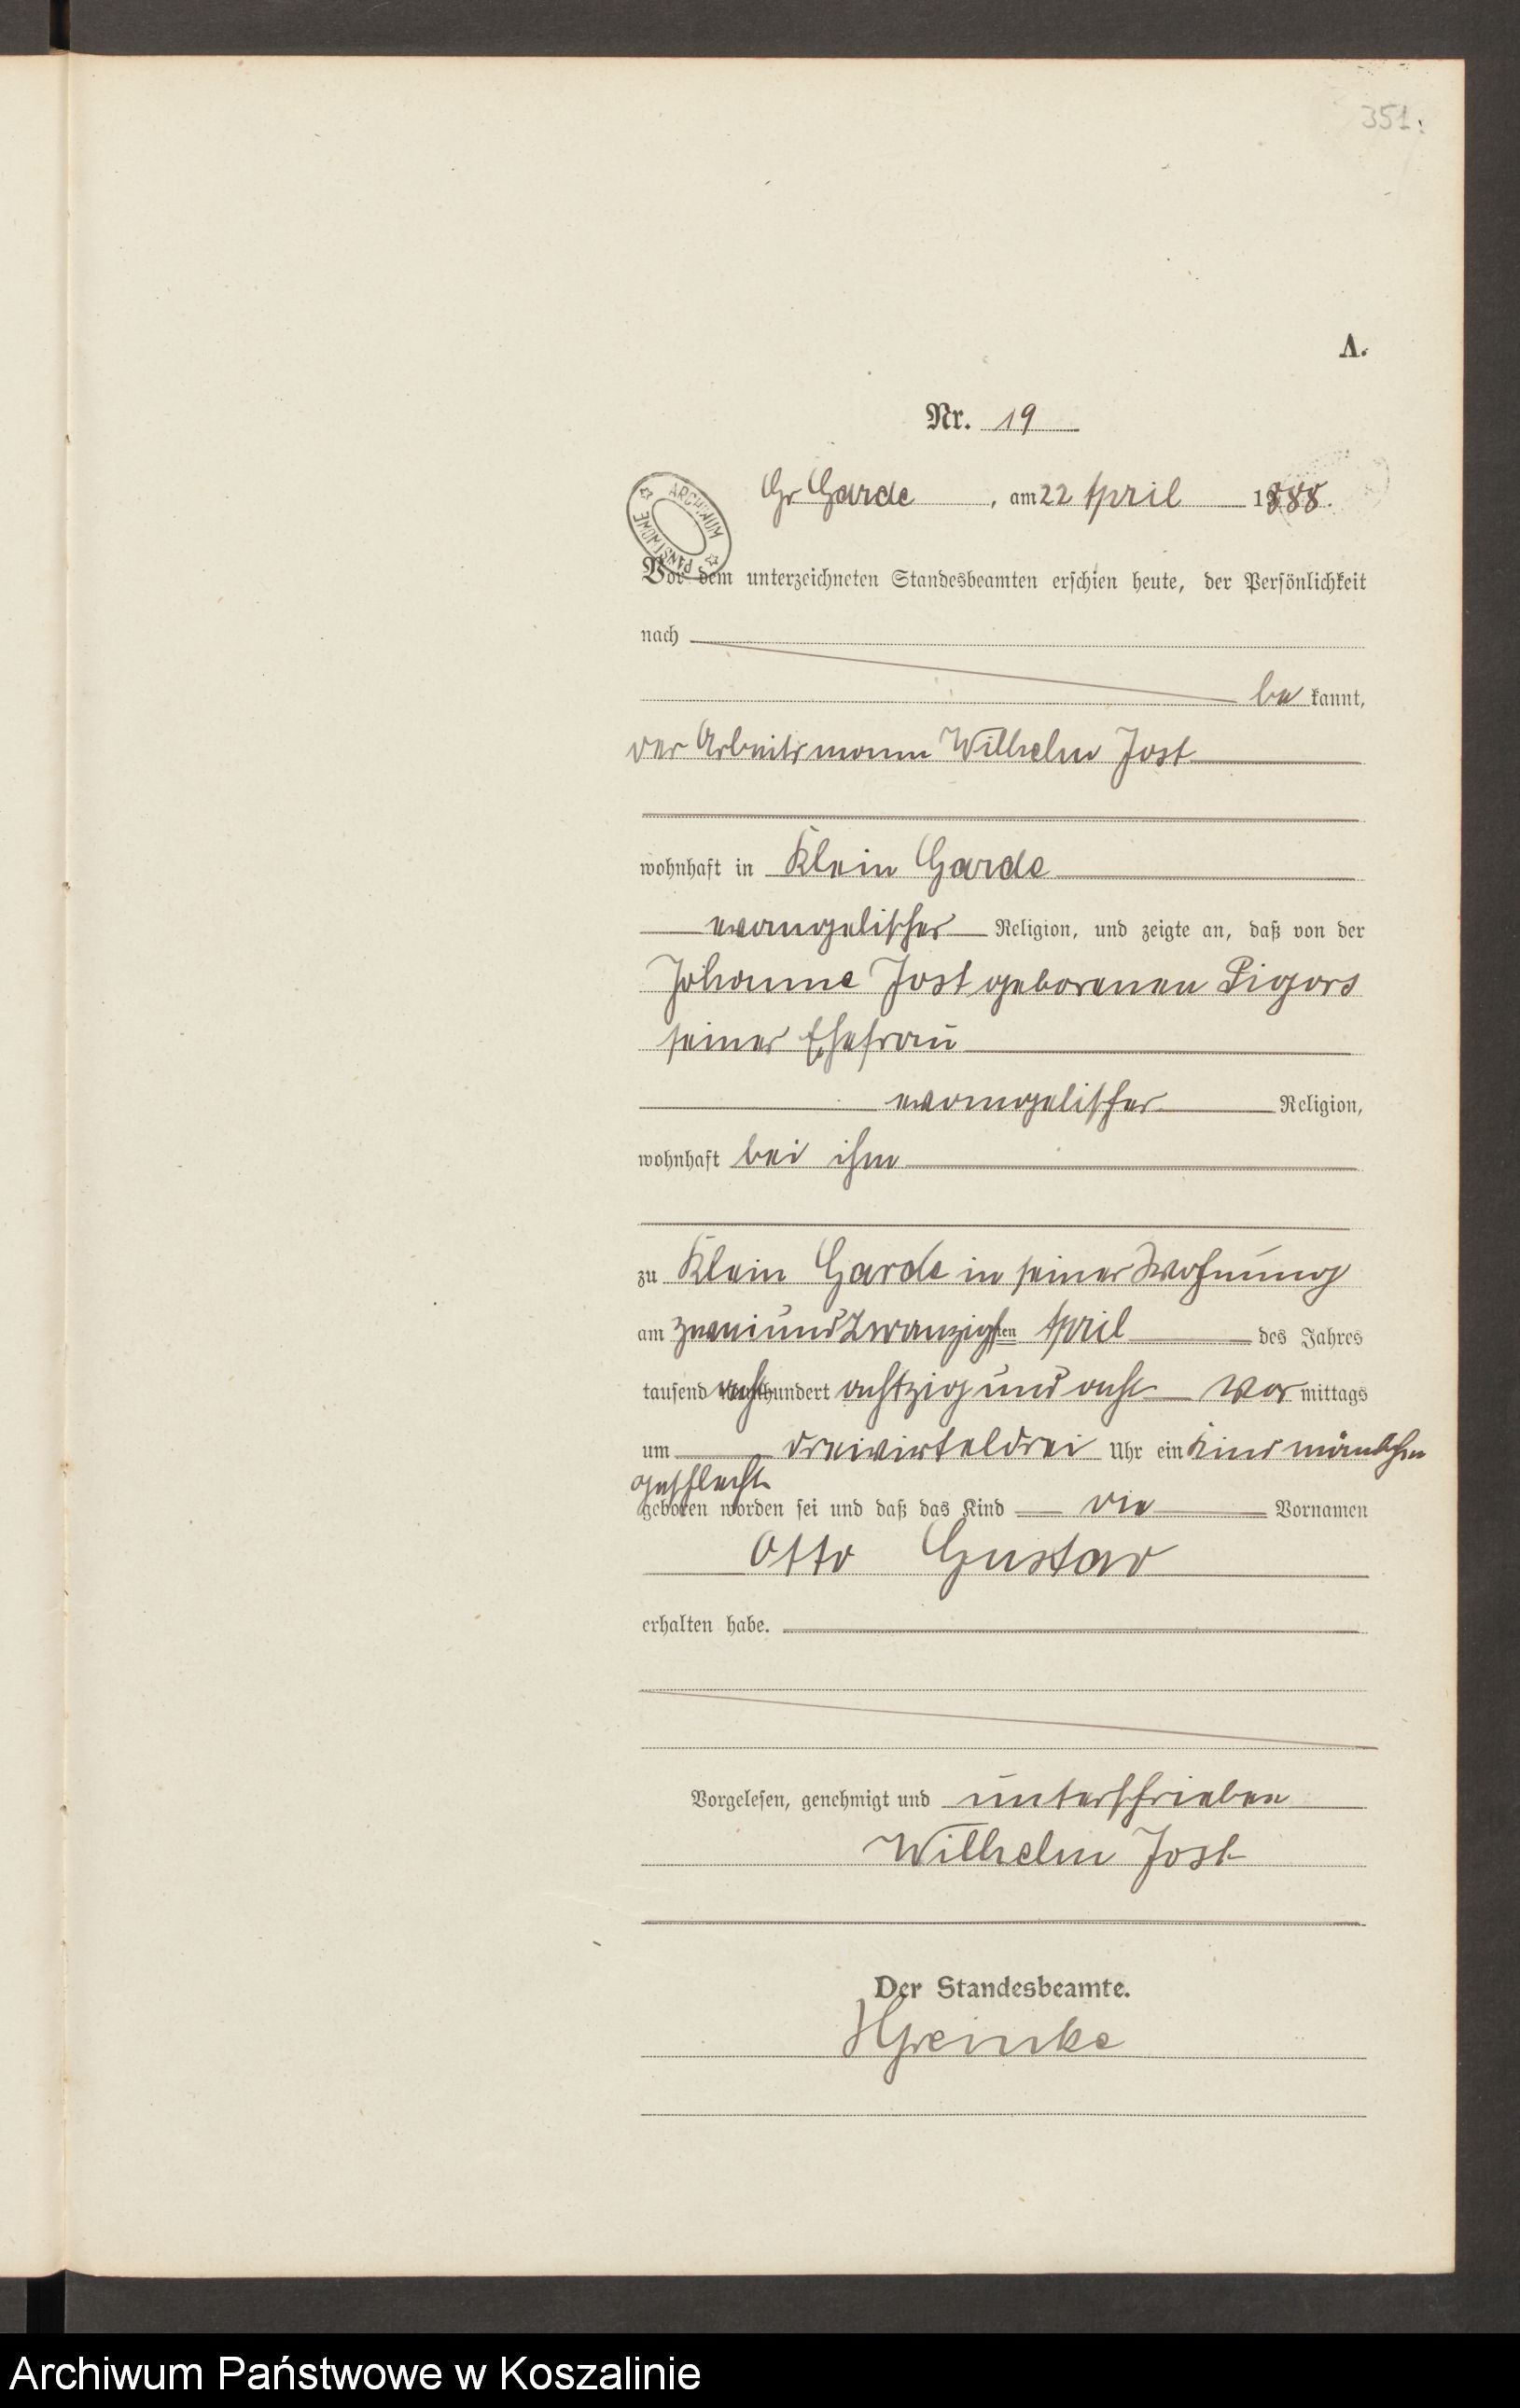 351.
A.
Nr. 19
Gr Garde, am 22 April 1888.
ARCHIWUM PAŃSTWOWE
Vor dem unterzeichneten Standesbeamten erschien heute, der Persönlichkeit
nach
be kannt,
der Arbeitsmann Wilhelm Jost
wohnhaft in Klein Garde
evangelischer Religion, und zeigte an, daß von der
Johanne Jost geborenen Pigors
seiner Ehefrau
evangelischer Religion,
wohnhaft bei ihm
zu Klein Garde in seiner Wohnung
am zweiundzwanzigsten April des Jahres
tausend achthundert achtzig und acht Vor mittags
um dreiviertel drei Uhr ein Kind mänlichen
Geschlecht
geboren worden sei und daß das Kind die Vornamen
Otto Gustav
erhalten habe.
Vorgelesen, genehmigt und unterschrieben
Wilhelm Jost
Der Standesbeamte.
HGreinke
Archiwum Państwowe w Koszalinie